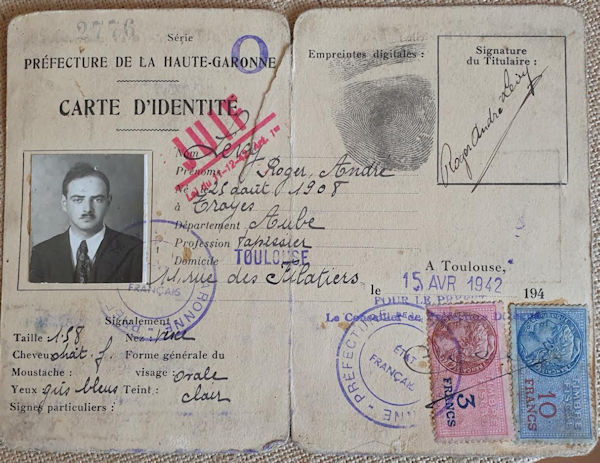 2776
Série
O
PRÉFECTURE DE LA HAUTE-GARONNE
CARTE D'IDENTITÉ
JUIF
Loi du 11-12-42 Art. 1er
Nom Levy
Prénoms Roger, André
Né le 25 août 1908
à Troyes
Département Aube
Profession Tapissier
Domicile TOULOUSE
11 rue des Filatiers
FRANÇAIS
Signalement
Taille 158 Nez:
Cheveux chat. f. Forme générale du
Moustache : visage: ovale
Yeux gris bleus Teint : clair
Signes particuliers :
Empreintes digitales :
Signature
du Titulaire :
Roger André Levy
A Toulouse,
le 15 AVR 1942 194
POUR LE PREFET
Le Conseiller de
PRÉFECTURE
ÉTAT
FRANÇAIS
3
FRANCS
10
FRANCS